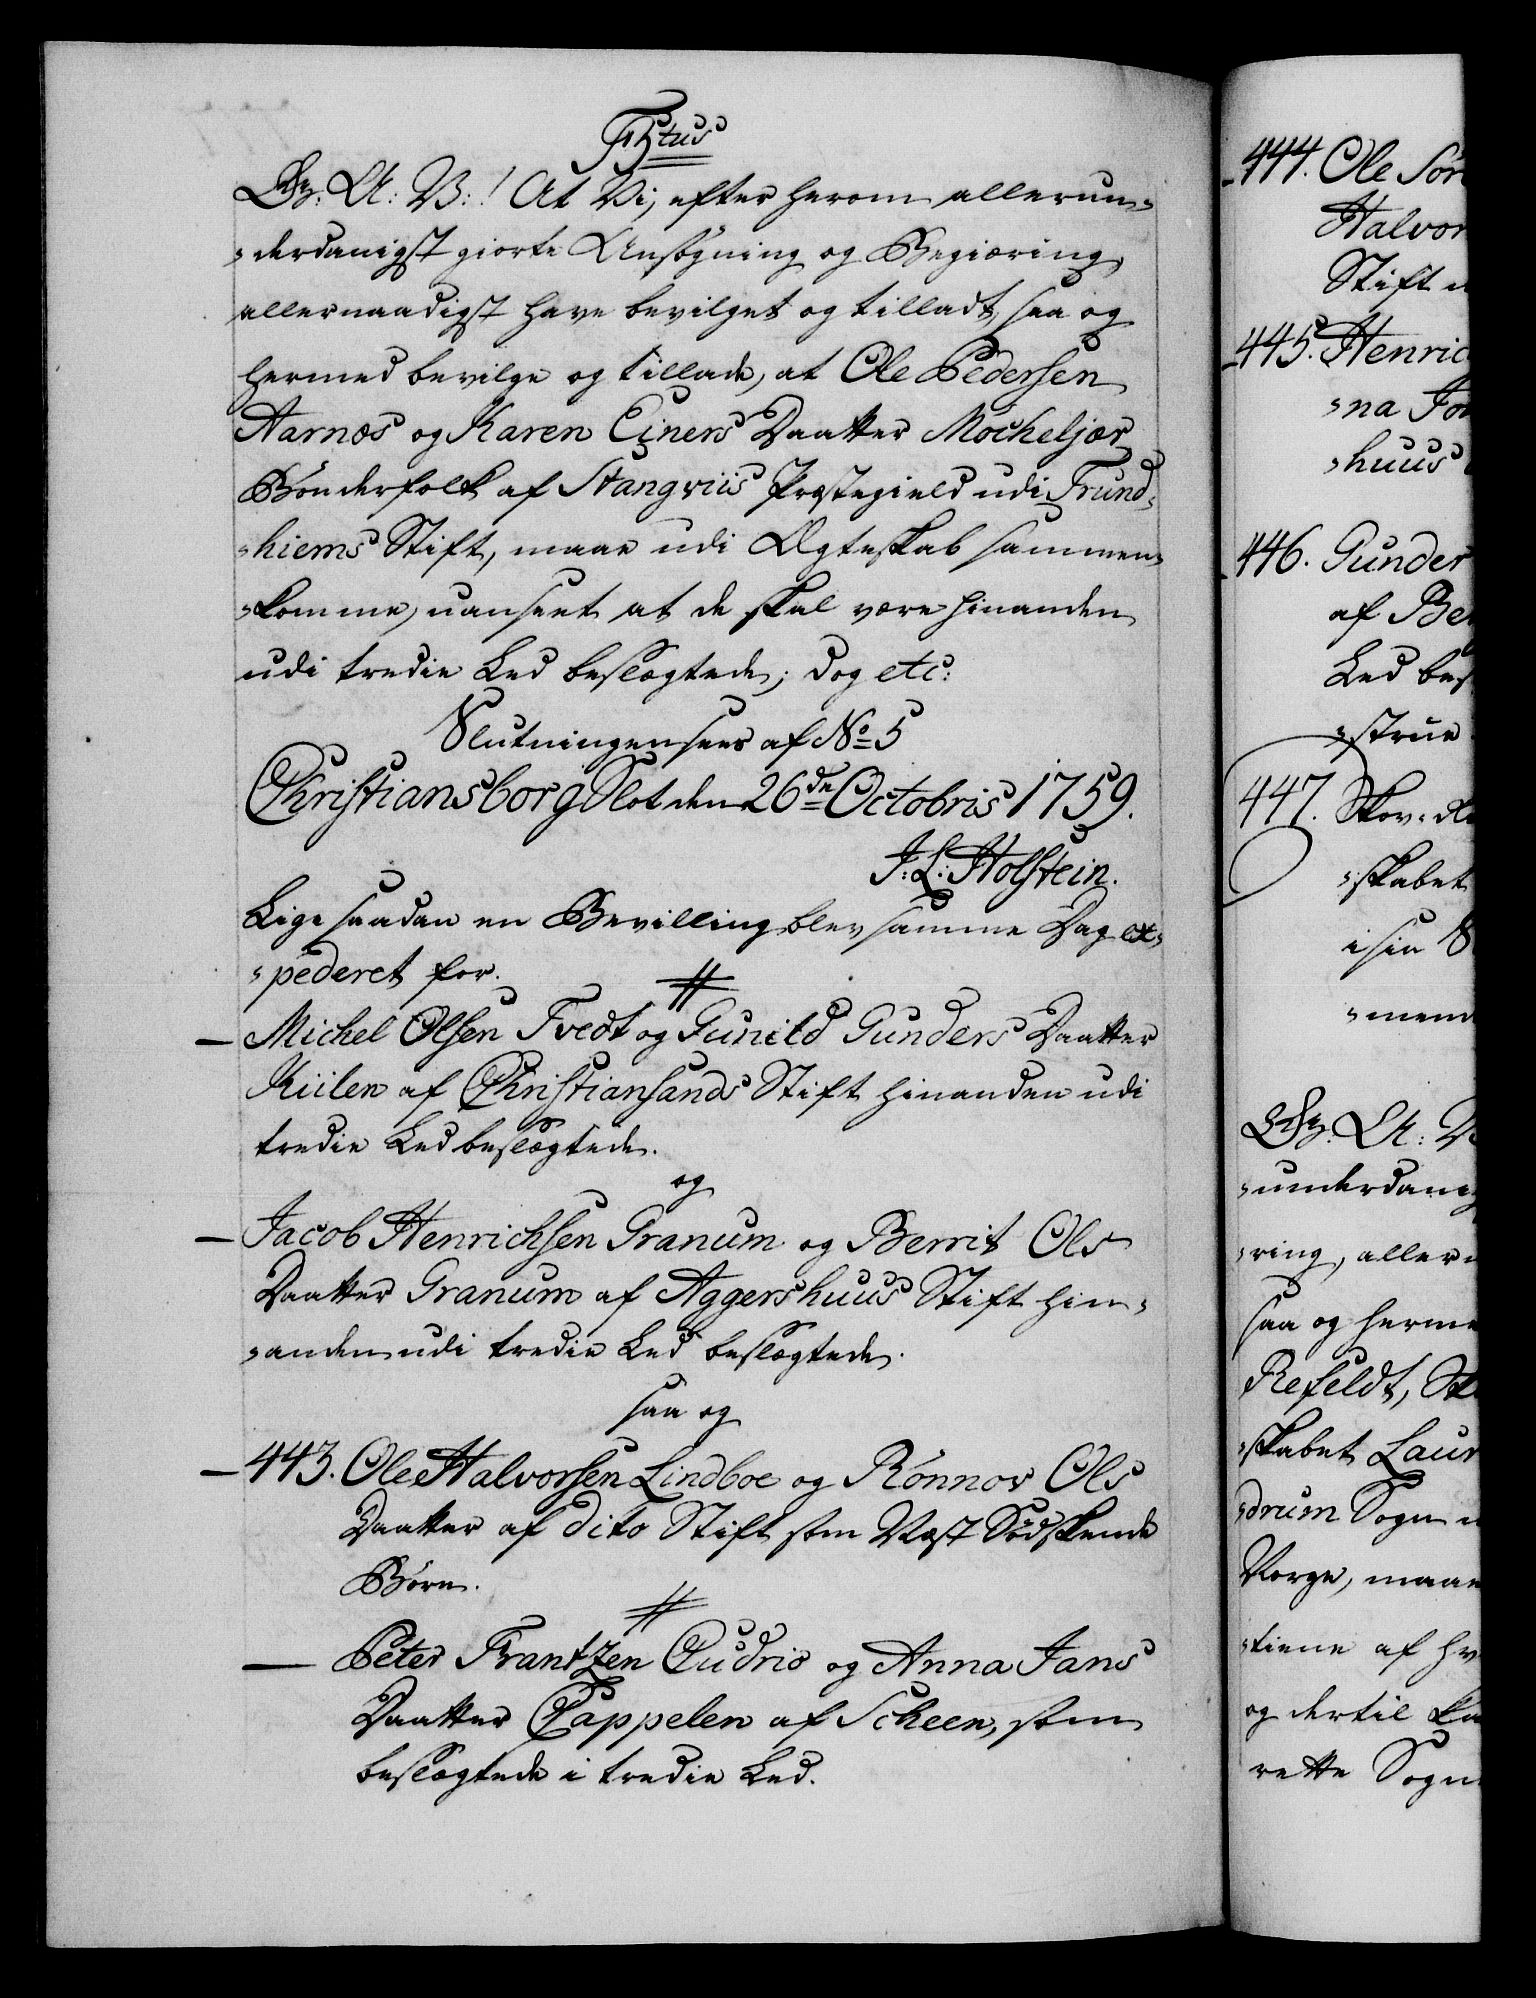 F5tus
G: A: V: ! At Vi, efter herom allerun-
-derdanigst giorte Ansøgning og Begiæring,
allernaadigst have bevilget og tilladt, saa og
hermed bevilge og tillade, at Ole Pedersen
Aarnæs og Karen Einers Daatter Mocheljær
Bønderfolk af Stangviis Præstegield udi Trund-
-hiems Stift, maae udi Ægteskab sammen-
-komme, uanseet at de skal være hinanden
udi tredie Led beslægtede; dog etc:
Slutningen sees af No 5
Christiansborg Slot den 26de Octobris 1759.
J: L: Holstein.
Lige saadan en Bevilling blev samme Dag ex-
-pederet for.
Michel Olsen Tvedt og Gunild Gunders Daatter
Kiilen af Christiansands Stift hinanden udi
tredie Led beslægtede.
og
Jacob Henrichsen Granum og Berrit Ols
Daatter Granum af Aggershuus Stift hin-
-anden udi tredie Led beslægtede.
saa og
443. Ole Halvorsen Lindboe og Rønnov Ols
Daatter af dito Stift som Næst Sødskende
Børn.
Peter Frantzen Cudrio og Anna Jans
Daatter Cappelen af Scheen, som
beslægtede i tredie Led.
444. Ole Sør
Halvor
Stift
445. Henric
-na Jo
-huus
446. Gunder
af Be
Led bes
-strue
447. Skov-
-skabet
i sin
-mend
G: A: V
-underdanig
-ring, allern
saa og herme
Refeldt, St
-skabet Laur
-drum Sogn
Norge, maae
-tiene af hv
og dertil
rette Sogn